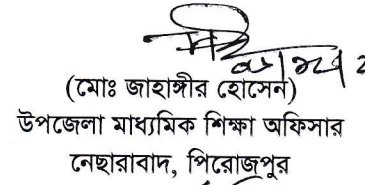 (মোঃ জাহাঙ্গীর হোসেন)
উপজেলা মাধ্যমিক শিক্ষা অফিসার
নেছারাবাদ, পিরোজপুর